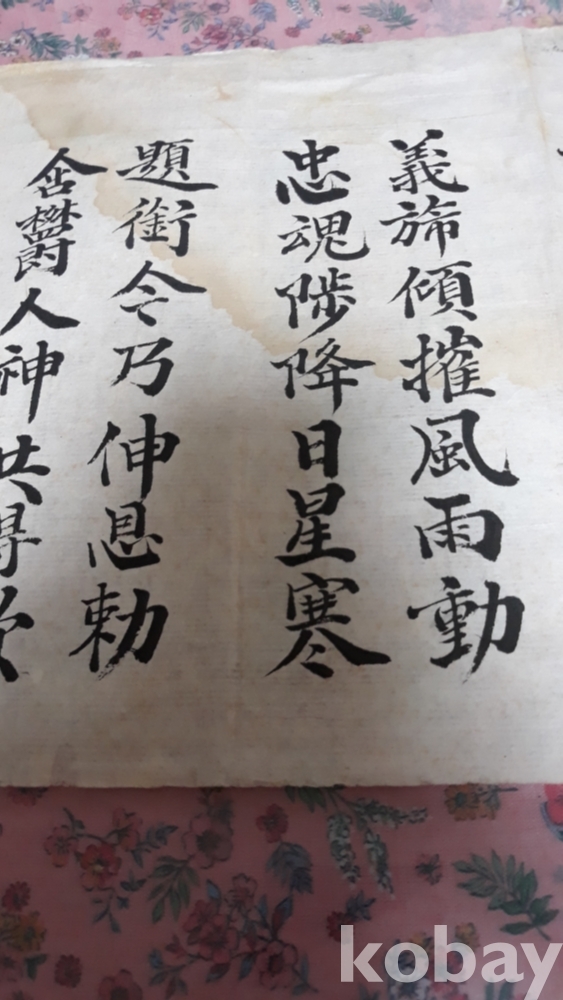 義旆傾摧風雨動
忠魂陟降日星寒
題銜今乃伸恩勅
含欝人神共得
kobay